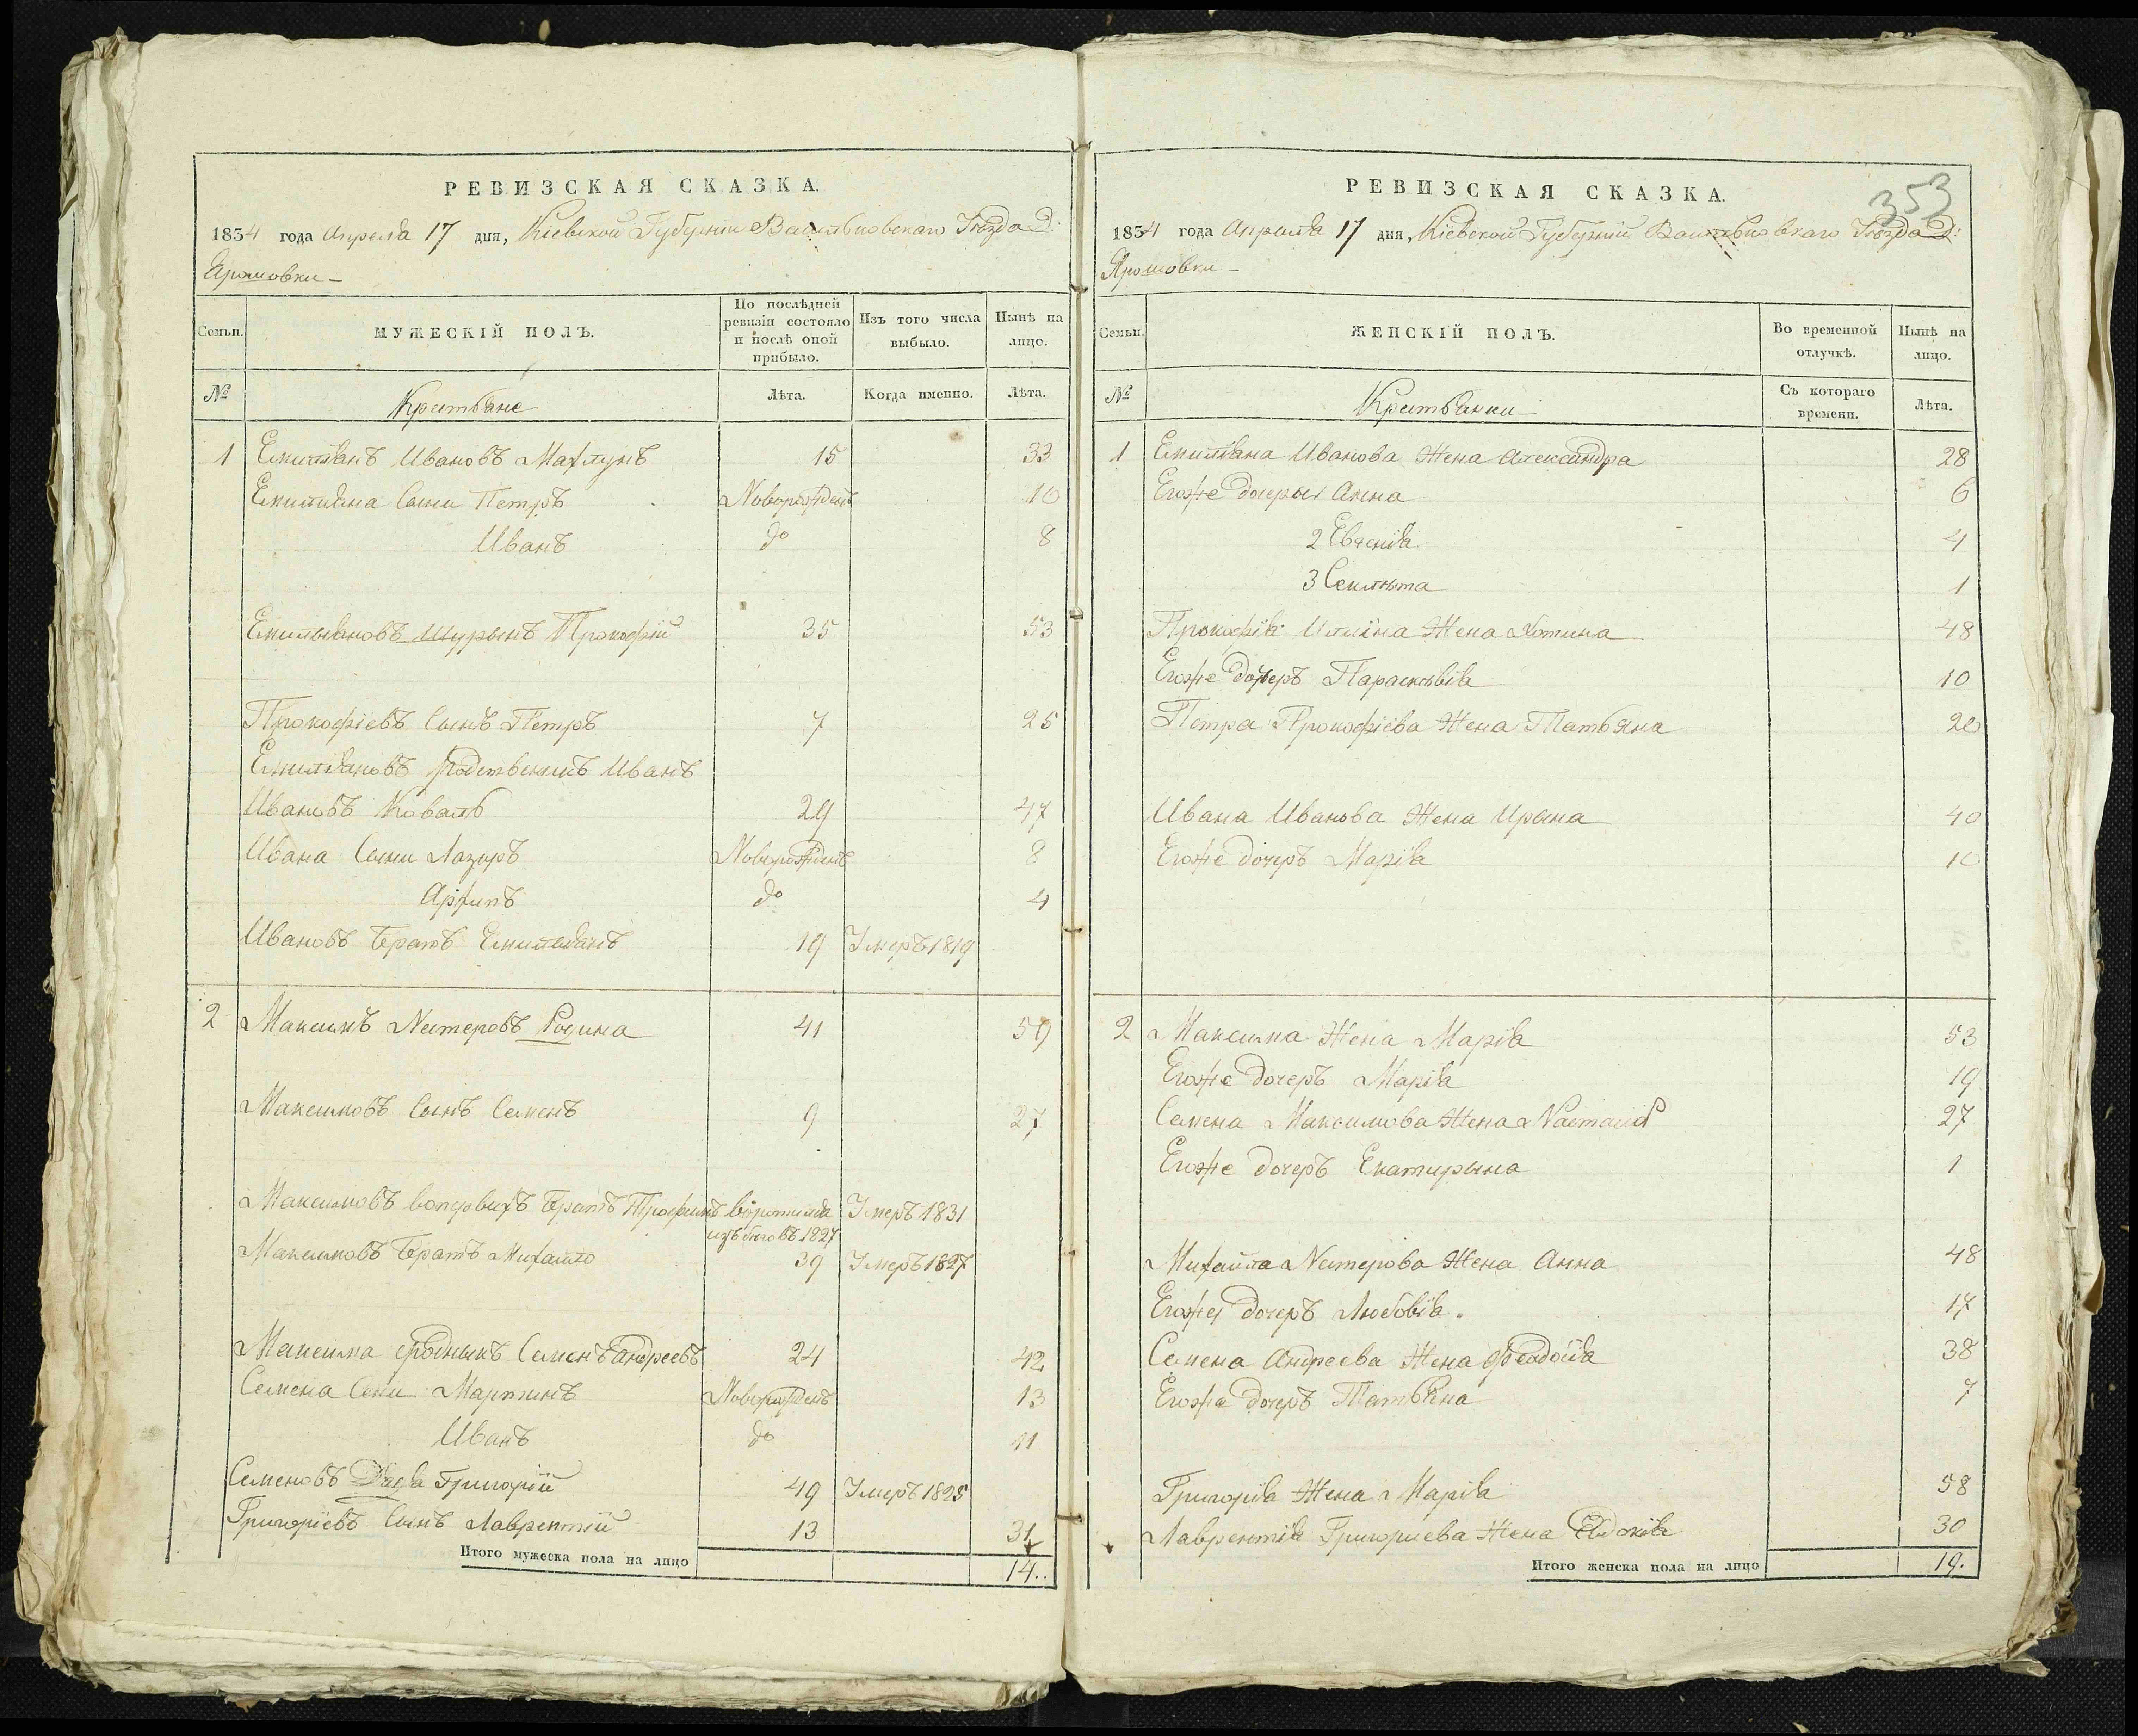 РЕВИЗСКАЯ СКАЗКА.
1834 года Апреля 17 дня, Кіевской Губерніи Васильковскаго Уѣзда Д:
Ярошовки
Семьи.
МУЖЕСКІЙ ПОЛЪ.
По послѣдней ревизіи состояло и послѣ оной прибыло.
Изъ того числа выбыло.
Нынѣ на лицо.
№
Крестьяне
Лѣта.
Когда именно.
Лѣта.
1 Емилианъ Ивановъ Махлунъ 15 33
Емилиана Сыни Петръ Новорожденъ 10
Иванъ до 8
Емилыановъ Шурынъ Прокофій 35 53
Прокофіевъ Сынъ Петръ 7 25
Емилиановъ родственникъ Иванъ
Ивановъ Коваль 29 47
Ивана Сыни Лазаръ Новорожденъ 8
Архипъ до 4
Ивановъ Братъ Емилыанъ 19 Умеръ 1819
2 Максимъ Нестеровъ 41 59
Максимовъ Сынъ Семенъ 9 27
Максимовъ вопервыхъ Братъ Трофимъ воротился Умеръ 1831
изъ бѣговъ 1827
Максимовъ Братъ Михайло 39 Умеръ 1827
Максима сродникъ Семенъ Андреевъ 24 42
Семена Сини Мартинъ Новорожденъ 13
Иванъ до 11
Семеновъ Дядя Григорій 49 Умеръ 1825
Григоріевъ Сынъ Лаврентій 13 31
Итого мужеска пола на лицо 14..
РЕВИЗСКАЯ СКАЗКА.
353
1834 года Апреля 17 дня, Кіевской Губерніи Васильковскаго Уѣзда Д:
Ярошовки
Семьи.
ЖЕНСКІЙ ПОЛЪ.
Во временной отлучкѣ.
Нынѣ на лицо.
№
Крестьянки
Съ котораго времени.
Лѣта.
1 Емилиана Иванова Жена Александра 28
Егоже дочеры Анна 6
2 Евгенія 4
3 Секлѣта 1
Прокофія Жена 48
Егоже дочеръ Параскѣвія 10
Петра Прокофіева Жена Татьяна 20
Ивана Иванова Жена Ирына 40
Егоже дочеръ Марія 10
2 Максима Жена Марія 53
Егоже дочеръ Марія 19
Семена Максимова Жена Настасія 27
Егоже дочеръ Екатирына 1
Михайла Нестерова Жена Анна 48
Егоже дочеръ Любовія 17
Семена Андреева Жена Феодосія 38
Егоже дочеръ Татьяна 7
Григорія Жена Марія 58
Лаврентія Григориева Жена Евдокія 30
Итого женска пола на лицо 19.